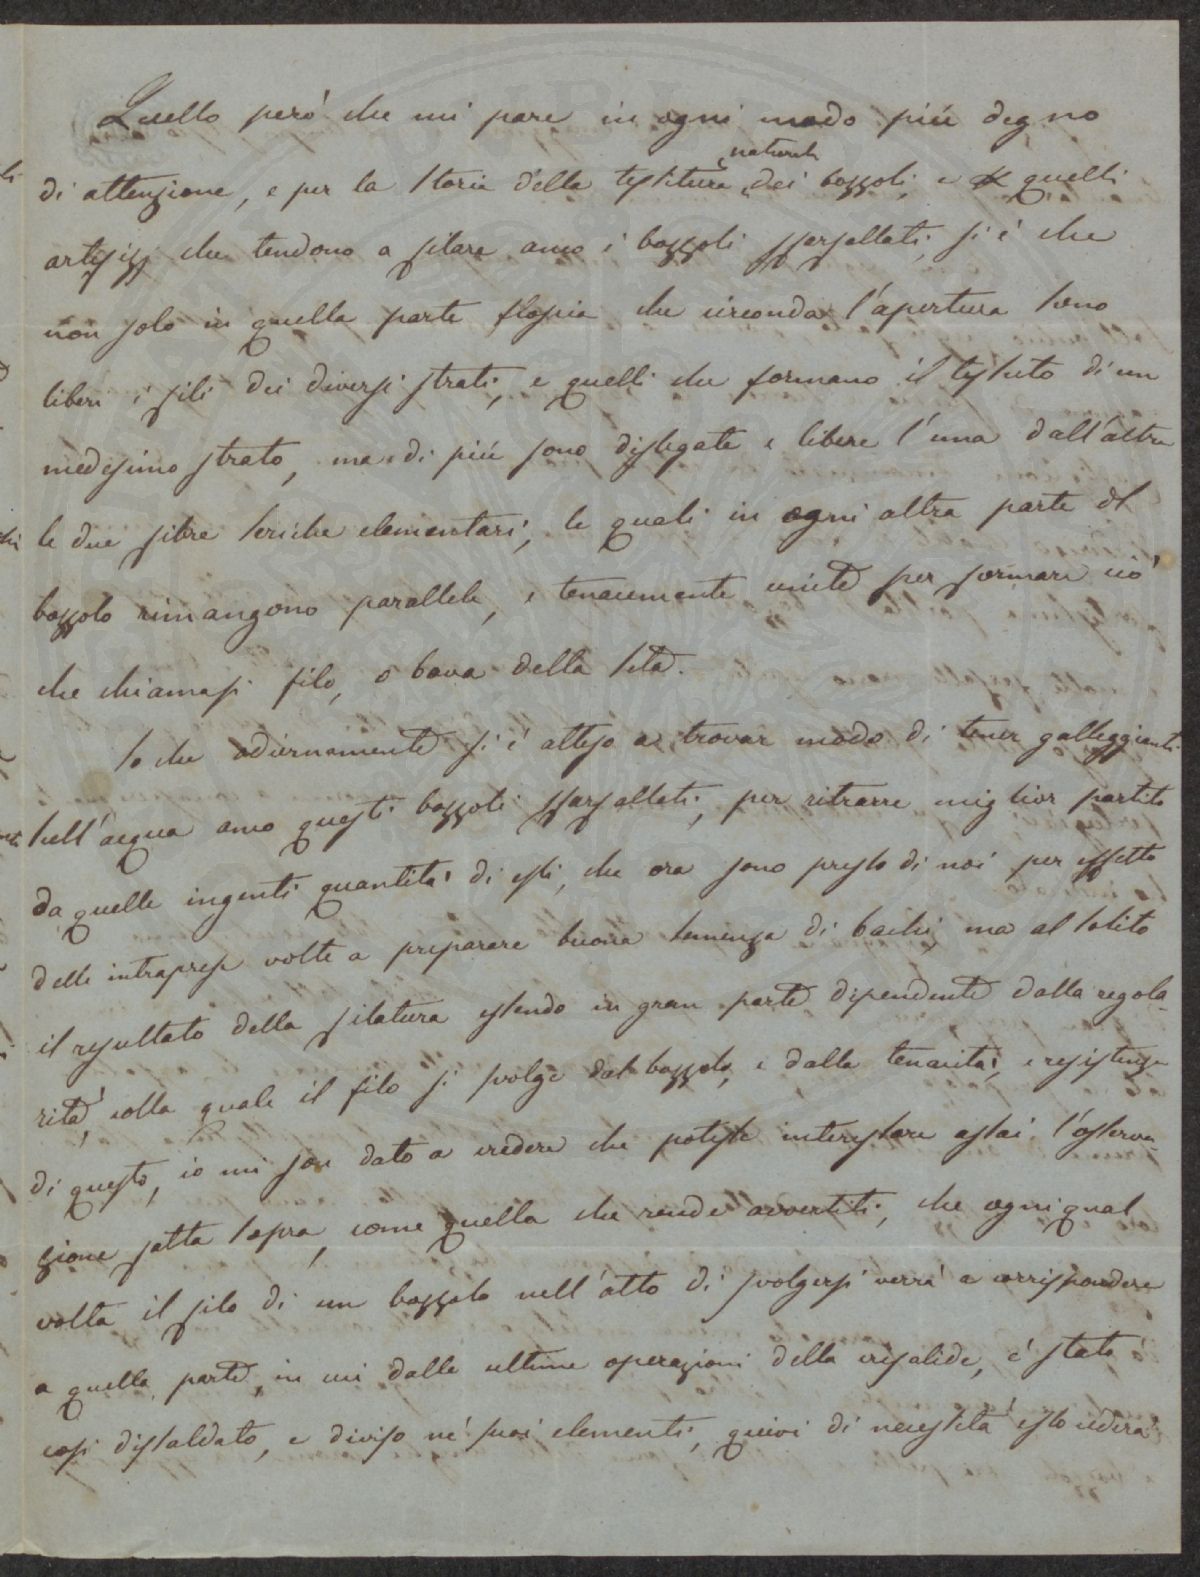 Quello però che mi pare in ogni modo più degno
naturale
di attenzione, e per la storia della testitura dei bozzoli, e quelli
artifizj che tendono a filare anco i bozzoli sfarfallati, si è che
non solo in quella parte floscia che circonda l'apertura sono
liberi i fili dei diversi strati, e quelli che formano il tessuto di un
medesimo strato, ma di più sono dislegate e libere l'una dall'altra
le due fibre seriche elementari, le quali in ogni altra parte del
bozzolo rimangono parallele, e tenacemente unite per formare ciò
che chiamasi filo, o bava della seta.
So che odiernamente si è atteso a trovar modo di tener galleggianti
sull'acqua anco questi bozzoli sfarfallati, per ritrarre miglior partito
da quelle ingenti quantità di essi, che ora sono presso di noi per effetto
delle intraprese volte a preparare buona semenza di bachi, ma al solito
il resultato della filatura essendo in gran parte dipendente dalla regola-
rità, colla quale il filo si svolge dal bozzolo, e dalla tenacità, e resistenza
di questo, io mi son dato a credere che potesse interessare assai l'osserva-
zione fatta sopra, come quella che rende avvertiti, che ogni qual
volta il filo di un bozzolo nell'atto di svolgersi verrà a corrispondere
a quella parte, in cui dalle ultime operazioni della crisalide, è stato
così dissaldato, e diviso ne' suoi elementi, quivi di necessità esso cederà